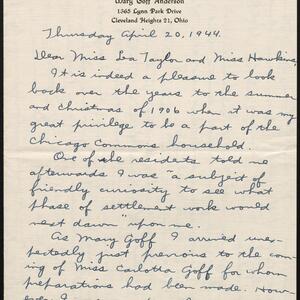 Mary Goff Anderson
1365 Lynn Park Drive
Cleveland Heights 21, Ohio
Thursday April 20, 1944.
Dear Miss Lea Taylor and Miss Hawkins,
It is indeed a pleasure to look
back over the years to the summer
and Christmas of 1906 when it was my
great privilege to be a part of the
Chicago Commons household.
One of the residents told me
afterwards I was "a subject of
friendly curiosity to see what
phase of settlement work would
next dawn" upon me.
As Mary Goff I arrived unex-
pectedly just previous to the com-
ing of Miss Carlotta Goff for whom
preparations had been made. How-